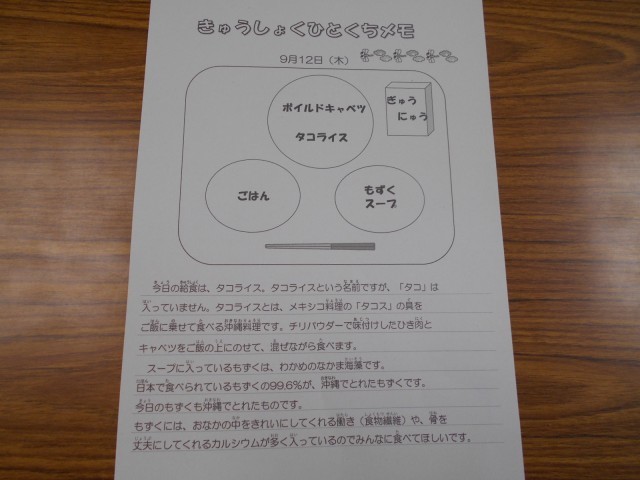 きゅうしょくひとくちメモ
9月12日（木）
ボイルドキャベツ
タコライス
ぎゅう
にゅう
ごはん
もずく
スープ
今日の給食は、タコライス。タコライスという名前ですが、「タコ」は
入っていません。タコライスとは、メキシコ料理の「タコス」の具を
ご飯に乗せて食べる沖縄料理です。チリパウダーで味付けしたひき肉と
キャベツをご飯の上にのせて、混ぜながら食べます。
スープに入っているもずくは、わかめのなかま海藻です。
日本で食べられているもずくの99.6%が、沖縄でとれたもずくです。
今日のもずくも沖縄でとれたものです。
もずくには、おなかの中をきれいにしてくれる働き（食物繊維）や、骨を
丈夫にしてくれるカルシウムが多く入っているのでみんなに食べてほしいです。